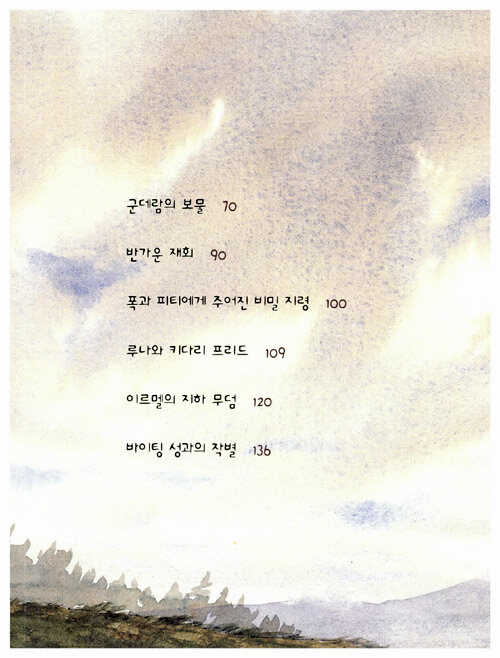 군데람의 보물 70
반가운 재회 90
폭과 피티에게 주어진 비밀 지령 100
루나와 키다리 프리드 109
이르멜의 지하 무덤 120
바이팅 성과의 작별 136